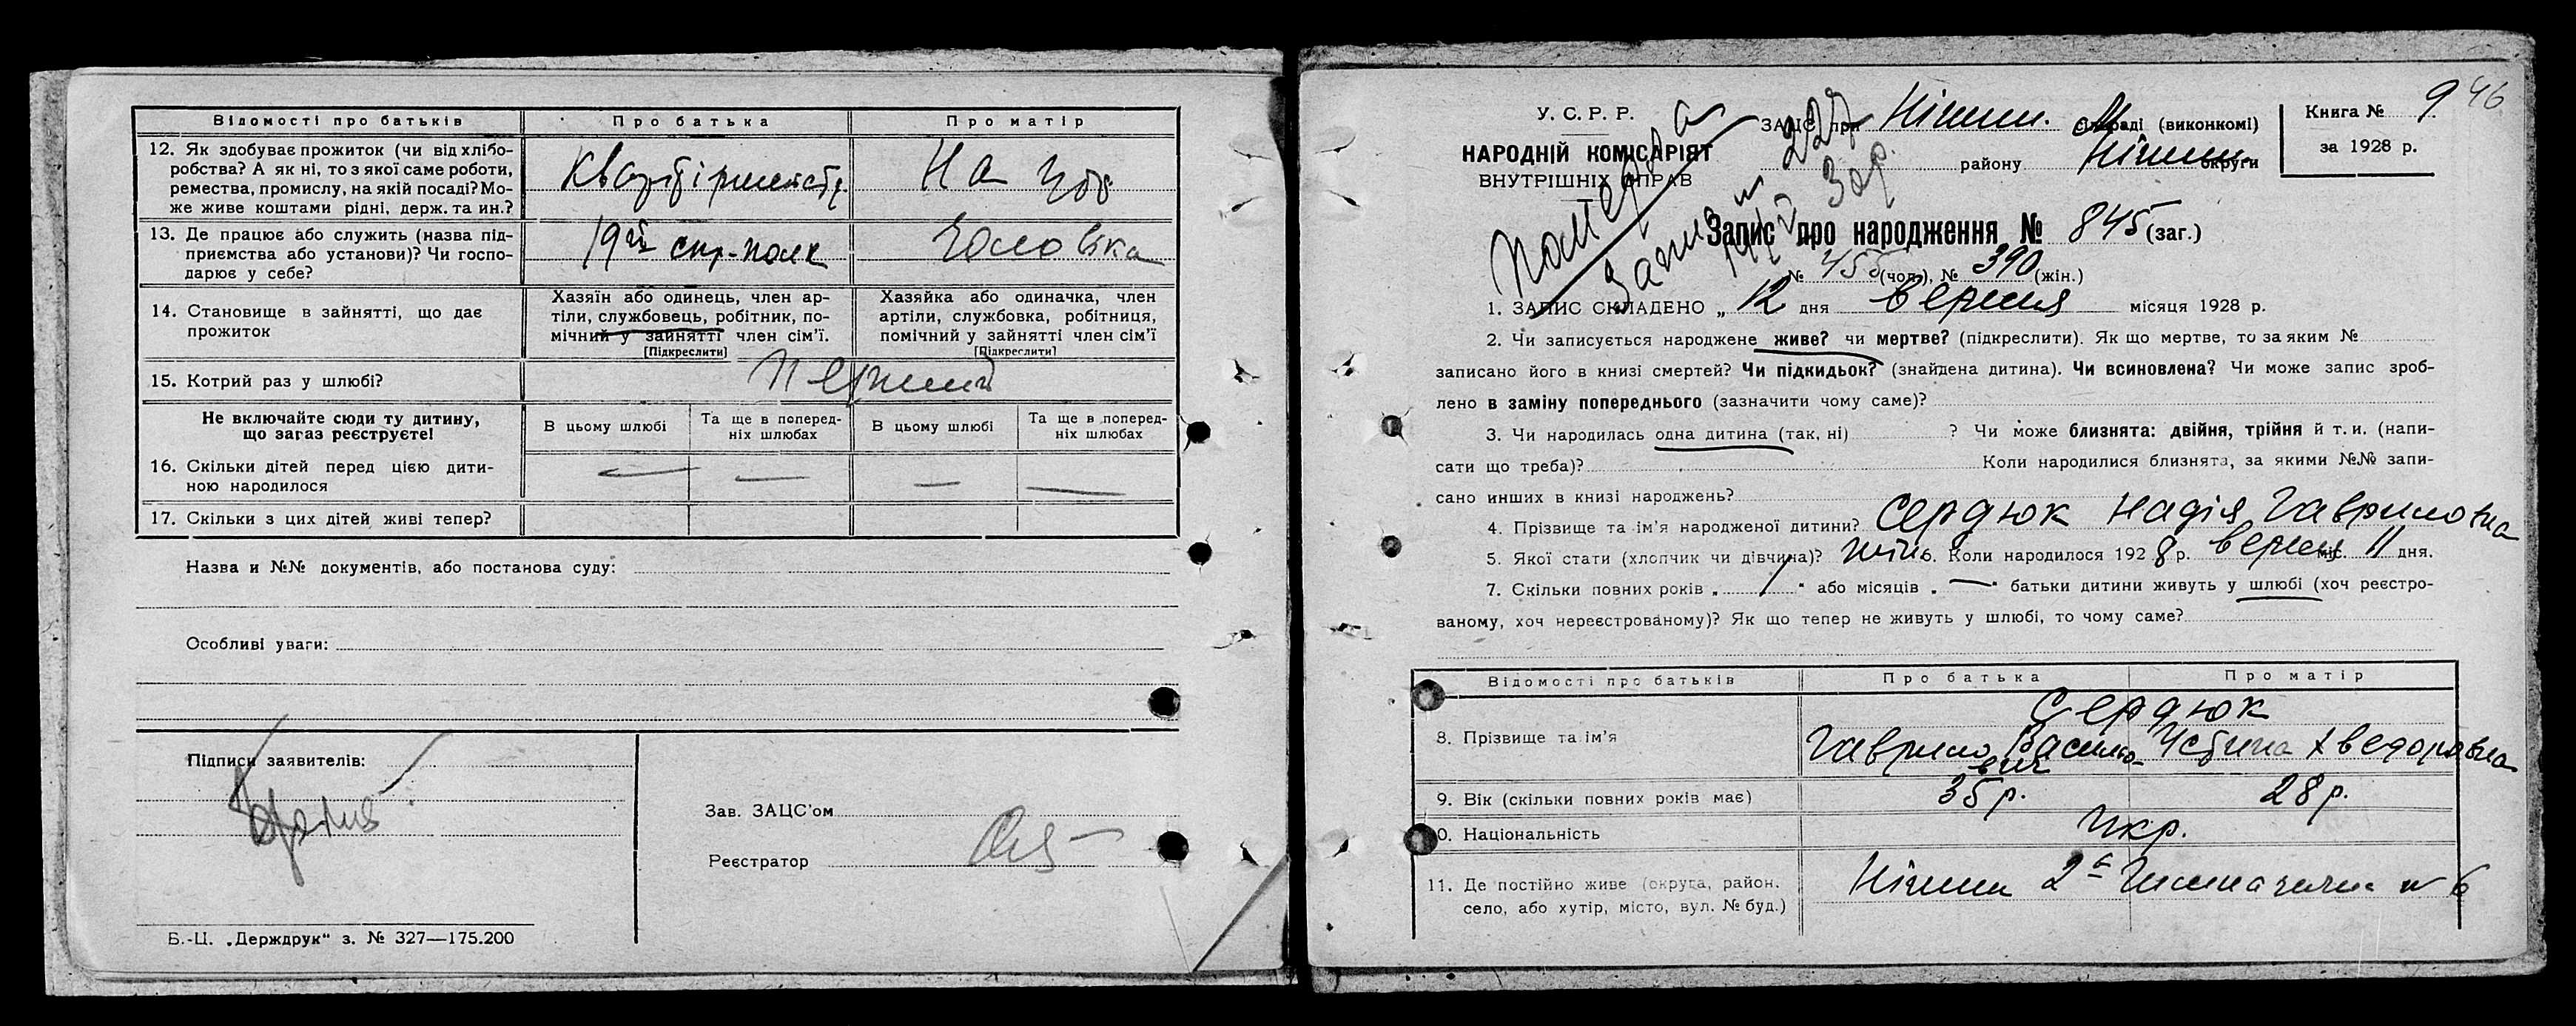 Відомості про батьків
Про батька
Про матір
12. Як здобуває прожиток (чи від хлібо-
робства? А як ні, то з якої саме роботи,
ремества, промислу, на якій посаді? Мо-
же живе коштами рідні, держ. та ин.?
Квартірмейстр
На утр
13. Де працює або служить (назва під-
приємства або установи)? Чи госпо-
дарює у себе?
19й стр-полк
Чоловіка
14. Становище в зайнятті, що дає
прожиток
Хазяїн або одинець, член ар-
тіли, службовець, робітник, по-
мічний у зайнятті член сім'ї.
[Підкреслити]
Хазяйка або одиначка, член
артіли, службовка, робітниця,
помічний у зайнятті член сім'ї
[Підкреслити]
15. Котрий раз у шлюбі?
Перший
Не включайте сюди ту дитину,
що загаз реєструєте!
В цьому шлюбі
Та ще в поперед-
ніх шлюбах
В цьому шлюбі
Та ще в поперед-
ніх шлюбах
16. Скільки дітей перед цією дити-
ною народилося
— — — —
17. Скільки з цих дітей живі тепер?
Назва и №№ документів, або постанова суду:
Особливі уваги:
Підписи заявителів:
Зав. ЗАЦС'ом
Реєстратор
Б.-Ц. „Держдрук" з. № 327—175.200
У. С. Р. Р.
НАРОДНІЙ КОМІСАРІЯТ
ВНУТРІШНІХ СПРАВ
ЗАЦС при Ніжин. сільраді (виконкомі)
району Ніжин. округи
Книга № 9
за 1928 р.
46
Померла
Запис № 227
Запис про народження № 845 (заг.)
№ 455 (чол.), № 390 (жін.)
1. ЗАПИС СКЛАДЕНО „ 12 дня вересня місяця 1928 р.
2. Чи записується народжене живе? чи мертве? (підкреслити). Як що мертве, то за яким №
записано його в книзі смертей? Чи підкидьок? (знайдена дитина). Чи всиновлена? Чи може запис зроб-
лено в заміну попереднього (зазначити чому саме)?
3. Чи народилась одна дитина (так, ні) ? Чи може близнята: двійня, трійня й т. и. (напи-
сати що треба)? Коли народилися близнята, за якими №№ запи-
сано инших в книзі народжень?
4. Прізвище та ім'я народженої дитини? Сердюк Надія Гавриловна
5. Якої стати (хлопчик чи дівчина)? жін 6. Коли народилося 1928 р. вересн міс. 11 дня.
7. Скільки повних років „ 1 " або місяців „ — " батьки дитини живуть у шлюбі (хоч реєстро-
ваному, хоч нереєстрованому)? Як що тепер не живуть у шлюбі, то чому саме?
Відомості про батьків
Про батька
Про матір
8. Прізвище та ім'я
Сердюк
Гаврило Василь-
вич
Устина Хведоровна
9. Вік (скільки повних років має)
35 р.
28 р.
10. Національність
Укр.
11. Де постійно живе (округа, район.
село, або хутір, місто, вул. № буд.)
Ніжин 2а Гимназична № 6